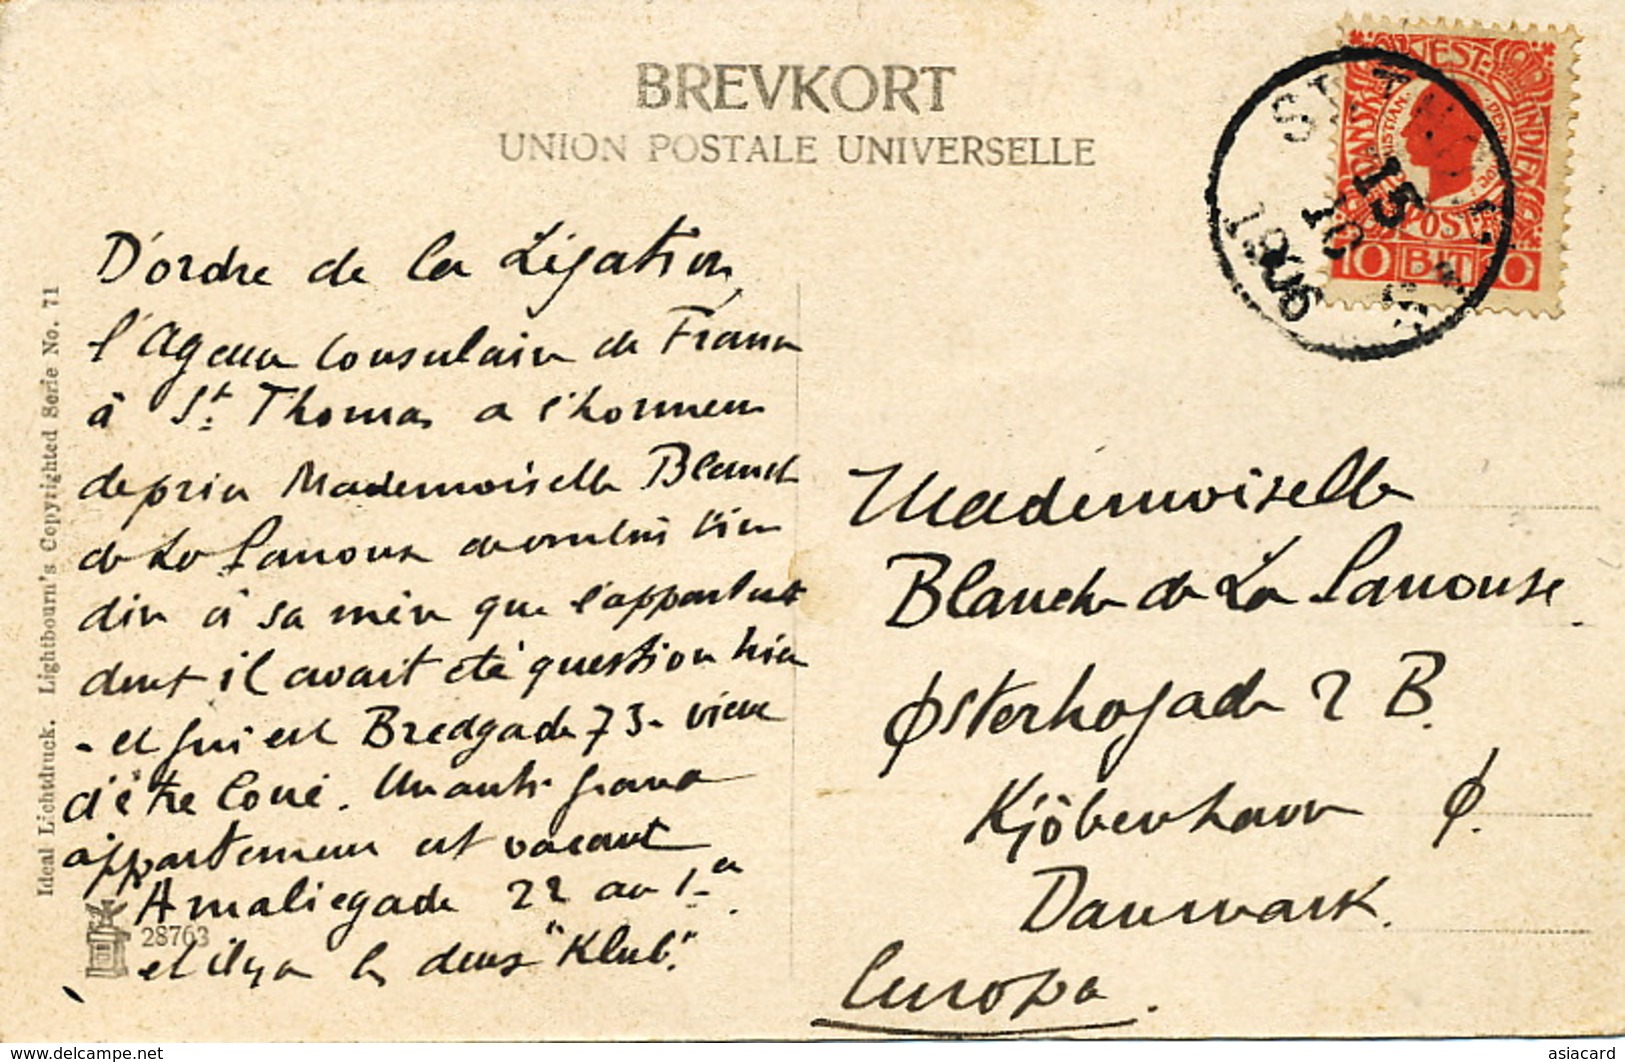 BREVKORT
UNION POSTALE UNIVERSELLE
DANSK VEST-INDIEN
POST
10 BIT 10
ST. THOMAS
15
10
1906
D'ordre de la Légation,
l'Agent Consulaire de France
à St Thomas a l'honneur
de prier Mademoiselle Blanche
de La Panouse de vouloir bien
dire à sa mère que l'appartement
dont il avait été question hier
- et qui est Bredgade 73 - vient
d'être loué. Un autre grand
appartement est vacant
Amaliegade 22 au 1er.
et il y a les deux "Klub".
Mademoiselle
Blanche de La Panouse
Østerhogade 2 B.
Kjöbenhavn Ø.
Danmark.
Europa.
Ideal Lichtdruck. Lightbourn's Copyrighted Serie No. 71
28763
www.delcampe.net
asiacard